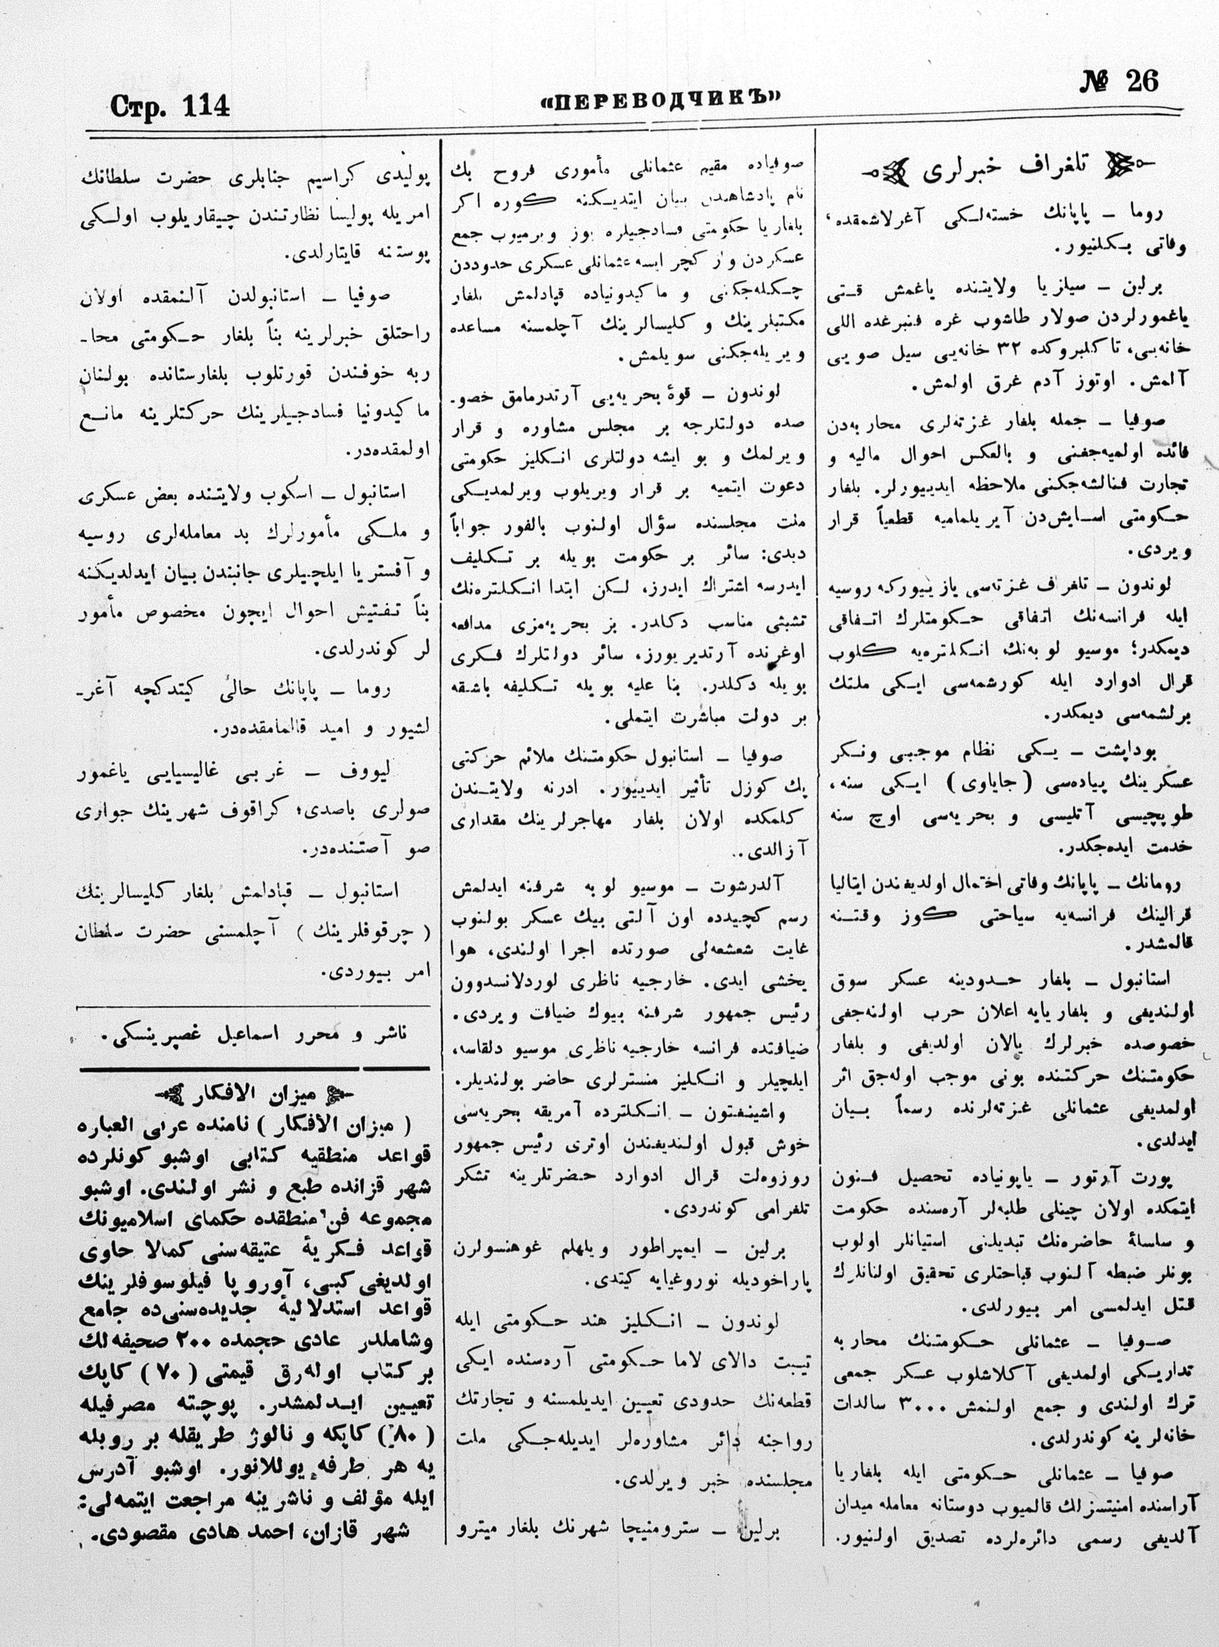 Стр. 114
«ПЕРЕВОДЧИКЪ»
№ 26
تلغراف خبرلری
روما ــ پاپانك خسته‌لـكی آغرلاشمقده،
وفاتی بـكلنیور.
برلین ــ سیلزیا ولایتنده یاغمش قـتی
یاغمورلردن صولار طاشوب غره فنبرغده اللی
خانه‌یی، تاكلبروكده ٣٢ خانه‌یی سیل صویی
آلمش. اوتوز آدم غرق اولمش.
صوفیا ــ جمله بلغار غزته‌لری محاربه‌دن
فائده اولمیه‌جغنی و بالعكس احوال مالیه و
تجارت فنالشه‌جكنی ملاحظه ایدییورلر. بلغار
حـكومتی اسـایش‌دن آیریلمامیه قطعیاً قرار
ویردی.
لوندون ــ تلغراف غزته‌سی یازییوركه روسیه
ایله فرانسه‌نك اتفاقی حـكومتلرك اتـفاقی
دیمكدر؛ موسیو لوبه‌نك انـكلتره‌یه كلوب
قرال ادوارد ایله كورشمه‌سی ایـكی ملتك
برلشمه‌سی دیمكدر.
بوداپشت ــ یـكی نظام موجبی ونـكر
عسكرینك پیاده‌سی (جایاوی) ایـكی سنه،
طوپچیسی آتلیسی و بحریه‌سی اوچ سنه
خدمت ایده‌جكدر.
رومانك ــ پاپانك وفاتی احتمال اولدیغندن ایتالیا
قرالینك فرانسه‌یه سیاحتی كوز وقتـنه
قالمشدر.
استانبول ــ بلغار حـدودینه عسكر سوق
اولندیغی و بلغاریایه اعلان حرب اولنه‌جغی
خصوصده خبرلرك یالان اولدیغی و بلغار
حكومتنك حركتنده بونی موجب اوله‌جق اثر
اولمدیغی عثمانلی غزته‌لرنده رسماً بـیان
ایدلدی.
پورت آرتور ــ یاپونیاده تحصیل فـنون
ایتمكده اولان چینلی طلبه‌لر آره‌سنده حكومت
و ساسۀ حاضره‌نك تبدیلنی استیانلر اولوب
بونلر ضبطه آلنوب قباحتلری تحقیق اولنانلرك
قتل ایدلمسی امر بیورلدی.
صـوفیا ــ عثمانلی حـكومتنك محاربه
تداریـكی اولمدیغی آكلاشلوب عسكر جمعی
ترك اولندی و جمع اولنمش ٣٠٠٠ سالدات
خانه‌لرینه كوندرلدی.
صوفیا ــ عثمانلی حـكومتی ایله بلغاریا
آراسنده امنیتسزلك قالمیوب دوستانه معامله میدان
آلدیغی رسمی دائره‌لرده تصدیق اولنیور.
صوفیاده مقیم عثمانلی مأموری فروح بك
نام پادشاهیدن بـیان ایتدیـكنه كوره اكر
بلغاریا حكومتی فسادجیلره یوز ویرمیوب جمع
عسكردن واز كچر ایسه عثمانلی عسكری حدوددن
چـكیله‌جكنی و ماكیدونیاده قپادلمش بلغار
مكتبلرینك و كلیسالرینك آچلمسنه مساعده
ویریله‌جكنی سویلمش.
لوندون ــ قوۀ بحریه‌یی آرتدرمامق خصو-
صده دولتلرجه بر مجلس مشاوره و قرار
ویرلمك و بو ایشه دولتلری انـكلیز حكومتی
دعوت ایتمیه بر قرار ویریلوب ویرلمدیـكی
ملت مجلسنده سؤال اولنوب بالفور جواباً
دیدی: سائر بر حكومت بویله بر تـكلیف
ایدرسه اشتراك ایدرز، لـكن ابتدا انـكلتره‌نك
تشبثی مناسب دكلدر. بز بحریه‌مزی مدافعه
اوغرنده آرتدیریورز، سائر دولتلرك فـكری
بویله دكلدر. بنا علیه بویله تـكلیفه باشقه
بر دولت مباشرت ایتملی.
صوفیا ــ استانبول حكومتنك ملائم حركتی
پك كوزل تأثیر ایدییور. ادرنه ولایتـندن
كلمكده اولان بلغار مهاجرلرینك مقداری
آزالدی.
آلدرشوت ــ موسیو لوبه شرفنه ایدلمش
رسم كچیدده اون آلتی بیك عسكر بولنوب
غایت شعشعه‌لی صورتده اجرا اولندی، هوا
یخشی ایدی. خارجیه ناظری لوردلانسدوون
رئیس جمهور شرفنه بیوك ضیافت ویردی.
ضیافتده فرانسه خارجیه ناظری موسیو دلقاسه،
ایلچیلر و انـكلیز منسترلری حاضر بولندیلر.
واشینغتون ــ انـكلترده آمریقه بحریه‌سی
خوش قبول اولندیغندن اوتری رئیس جمهور
روزوه‌لت قرال ادوارد حضرتلرینه تشكر
تلغرامی كوندردی.
برلین ــ ایمپراطور ویلهلم غوهنسولرن
پاراخودیله نوروغیایه كیتدی.
لوندون ــ انـكلیز هند حـكومتی ایله
تیبت دالای لاما حـكومتی آره‌سنده ایـكی
قطعه‌نك حدودی تعیین ایدیلمسنه و تجارتك
رواجنه دائر مشاوره‌لر ایدیله‌جـكی ملت
مجلسنده خبر ویرلدی.
برلین ــ سترومنیچا شهرنك بلغار میترو
پولیدی كراسیم جنابلری حضرت سلطانك
امریله پولیسا نظارتـندن چـیقاریلوب اولـكی
پوستنه قایتارلدی.
صوفیا ــ استانبولدن آلنمقده اولان
راحتلق خبرلرینه بناً بلغار حـكومتی محا-
ربه خوفندن قورتلوب بلغارستانده بولنان
ماكیدونیا فسادجیلرینك حركتلرینه مانـع
اولمقده‌در.
استانبول ــ اسكوب ولایتنده بعض عسكری
و ملـكی مأمورلرك بد معامله‌لری روسیه
و آفستریا ایلچیلری جانبندن بیان ایدلدیكنه
بناً تـفـتیش احوال ایچون مخصوص مأمور
لر كوندرلدی.
روما ــ پاپانك حالی كیتدكچه آغر-
لشیور و امید قالمامقده‌در.
لیووف ــ غربی غالیسیایی یاغمور
صولری باصدی؛ كراقوف شهرینك جواری
صو آصتنده‌در.
استانبول ــ قپادلمش بلغار كلیسالرینك
(چرقوفلرینك) آچلمسنی حضرت سلطان
امر بیوردی.
ناشر و محرر اسماعیل غصپرینسكی.
میزان الافكار
(میزان الافكار) نامنده عربی العباره
قواعد منطقیه كتابی اوشبو كونلرده
شهر قزانده طبع و نشر اولندی. اوشبو
مجموعه فن منطقده حكمای اسلامیونك
قواعد فـكریۀ عتیقه‌سنی كمالا حاوی
اولدیغی كبی، آوروپا فیلوسوفلرینك
قواعد استدلالیۀ جدیده‌سنی‌ده جامع
وشاملدر عادی حجمده ٢٠٠ صحیفه‌لك
بر كتاب اوله‌رق قیمتی (٧٠) كاپك
تعیین ایـدلمشدر. پوچته مصرفیله
(٨٠) كاپكه و نالوژ طریقله بر روبله
یه هر طرفه یوللانور. اوشبو آدرس
ایله مؤلف و ناشرینه مراجعت ایتمه‌لی:
شهر قازان، احمد هادی مقصودی.